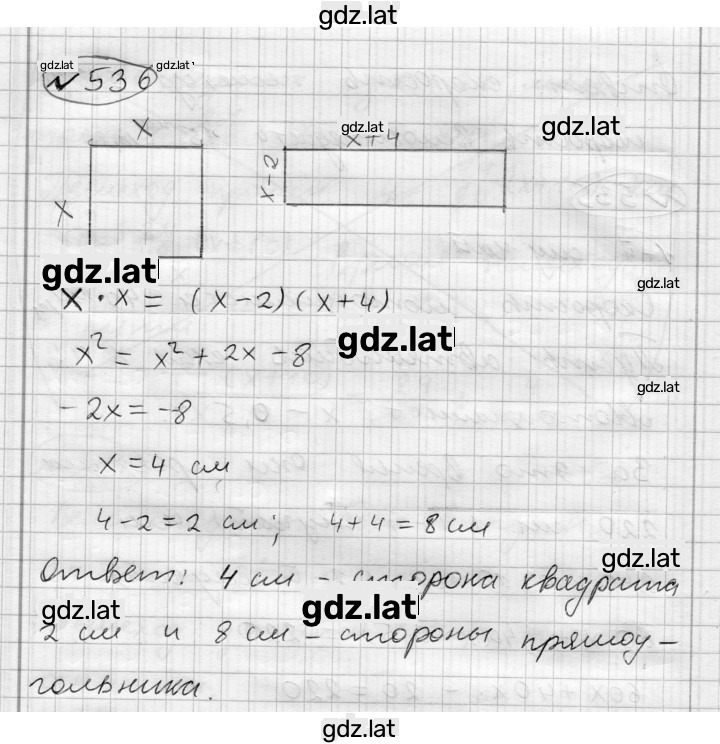 gdz.lat
gdz.lat gdz.lat
№ 536
x
gdz.lat
gdz.lat
x+4
x
x-2
gdz.lat
gdz.lat
x · x = (x-2)(x+4)
gdz.lat
x² = x² + 2x - 8
gdz.lat
-2x = -8
x = 4 см
4-2 = 2 см; 4+4 = 8 см
gdz.lat
Ответ: 4 см - сторона квадрата
gdz.lat gdz.lat
2 см и 8 см - стороны прямоу-
гольника.
gdz.lat